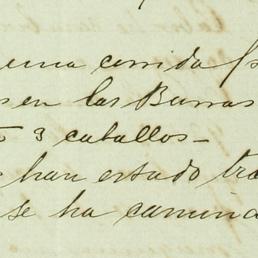 una corrida
en las Burras
3 caballos—
han estado tra
se ha camina